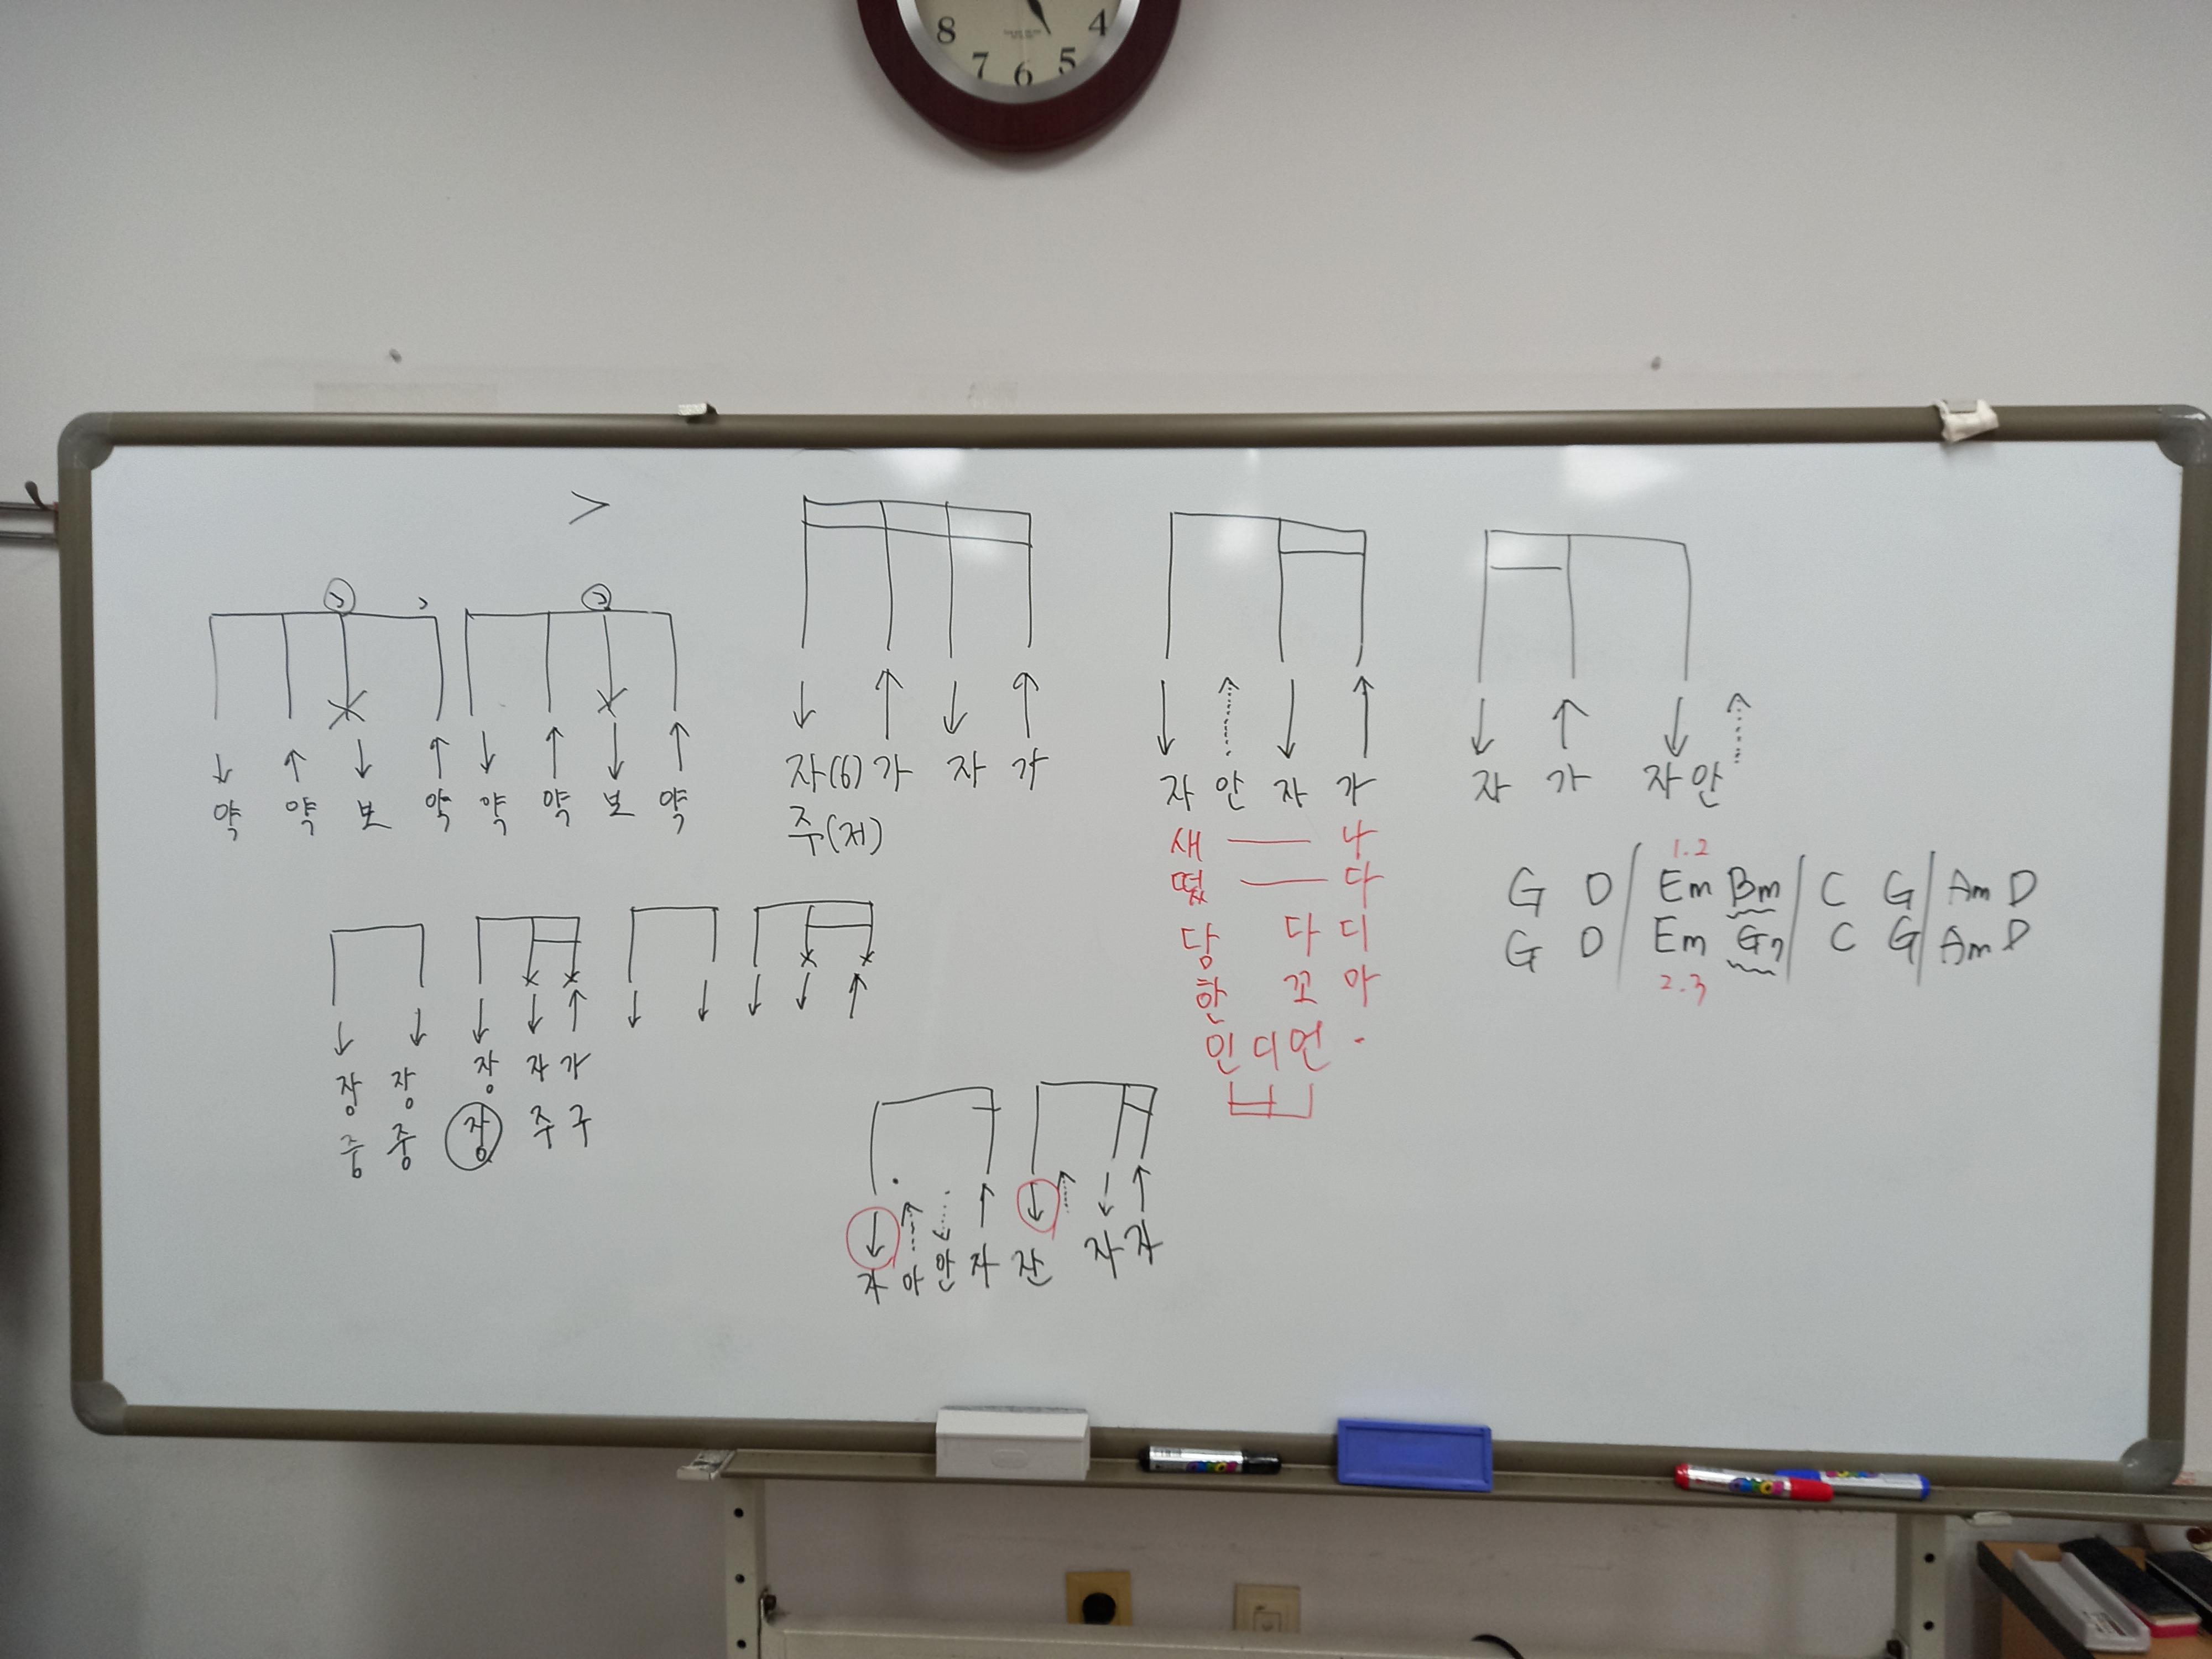 8 7 6 5 4
>
약 약 보 약 약 약 보 약
자(6) 가 자 가
주(저)
자 안 자 가
새 — 나
떴 — 다
당 다 디
한 꼬 아
인 디 언 .
자 가 자 안
1.2
G D / Em Bm / C G / Am D
G D / Em G7 / C G / Am D
2.3
장 장 장 자 가
중 중 장 주 구
자 아 안 자 잔 자 가